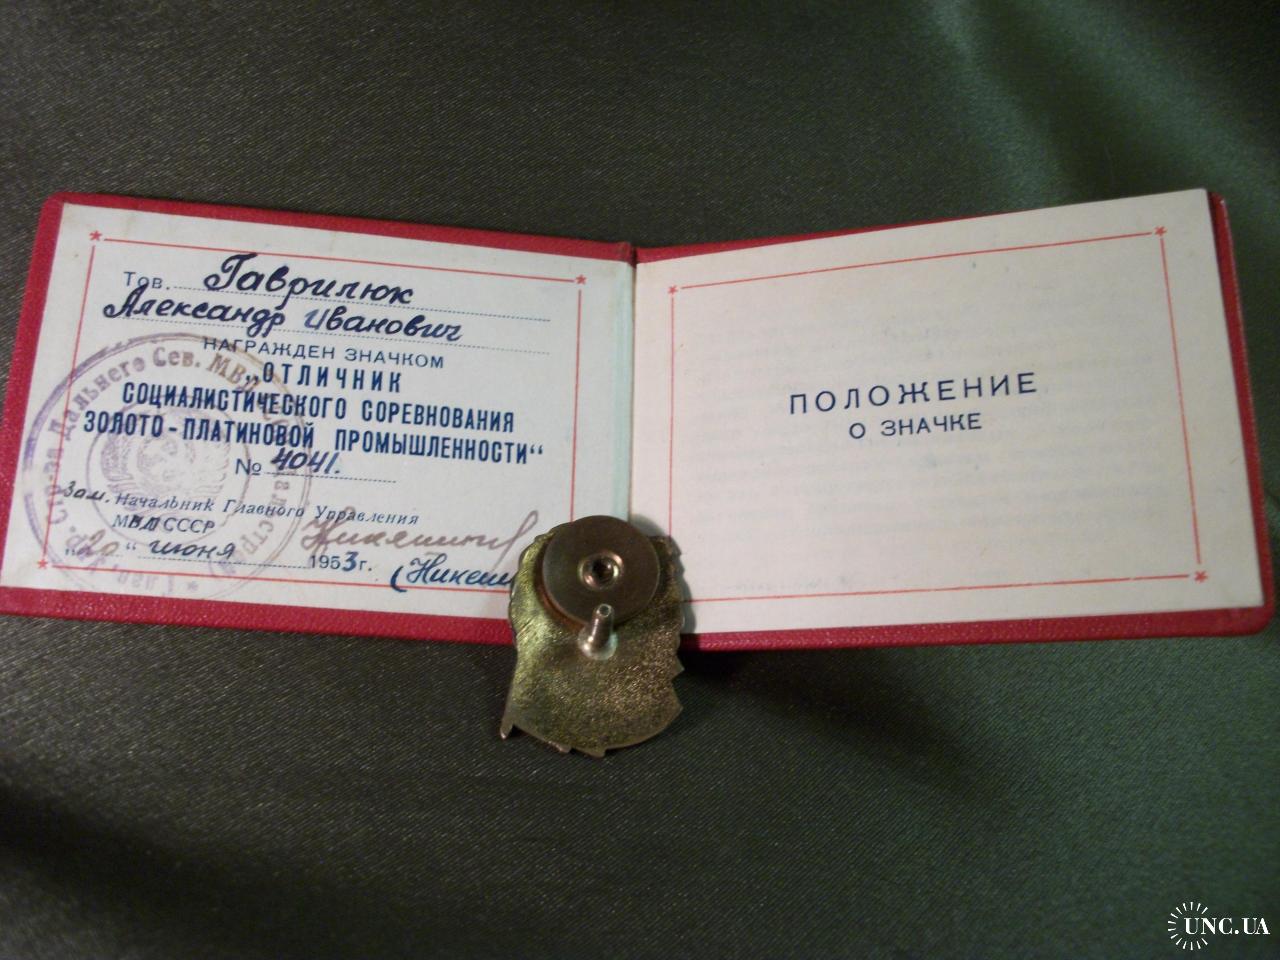 Тов. Гаврилюк
Александр Иванович
НАГРАЖДЕН ЗНАЧКОМ
„ОТЛИЧНИК
СОЦИАЛИСТИЧЕСКОГО СОРЕВНОВАНИЯ
ЗОЛОТО-ПЛАТИНОВОЙ ПРОМЫШЛЕННОСТИ“
№ 4041.
Зам. Начальник Главного Управления
МВД СССР
„20“ июня 1953 г.
Дальнего Сев. МВД
ПОЛОЖЕНИЕ
О ЗНАЧКЕ
UNC.UA